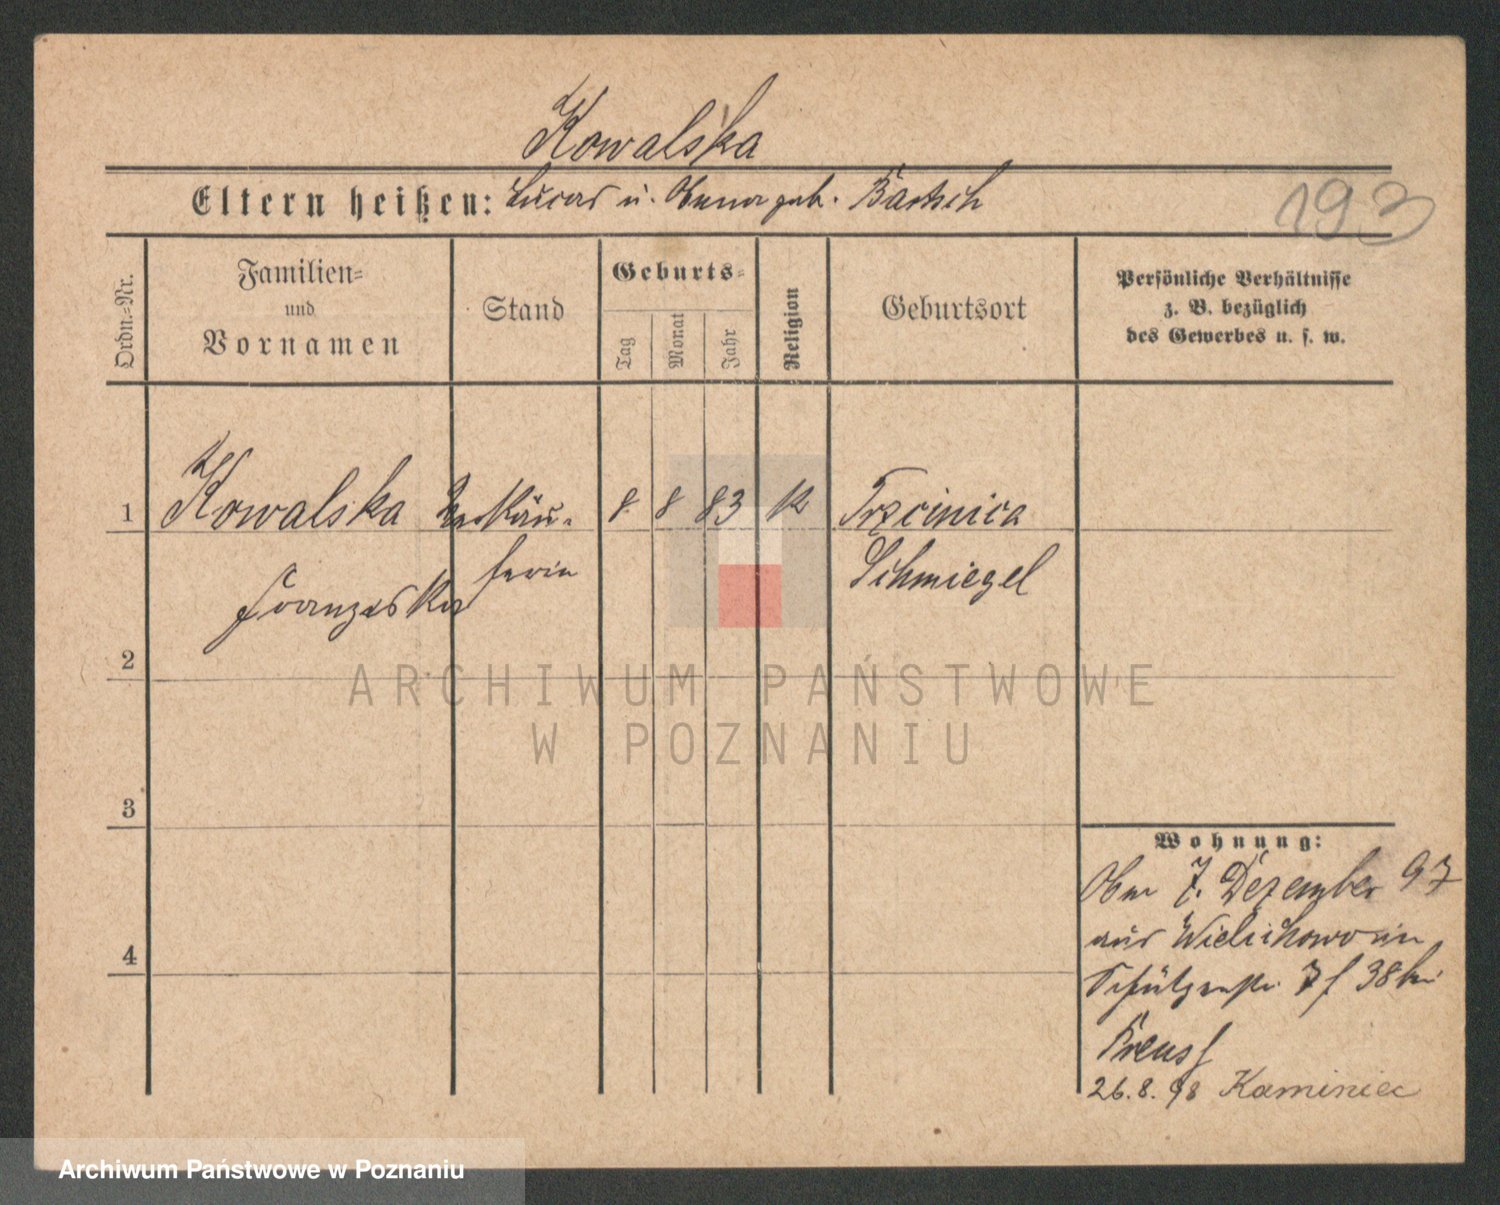 Kowalska
Eltern heißen: Lucas u. Anna geb. Bartsch
193
Ordn.-Nr.
Familien-
und
Vornamen
Stand
Geburts-
Tag
Monat
Jahr
Religion
Geburtsort
Persönliche Verhältnisse
z. B. bezüglich
des Gewerbes u. s. w.
1 Kowalska Verkäu- 8 8 83 k Trzcinica
Franziska ferin Schmiegel
2
3
4
Wohnung:
7. Dezember 97
aus Wielichowo in
Schützenstr. 38 bei
Preuss
26.8.98 Kaminiec
ARCHIWUM PAŃSTWOWE
W POZNANIU
Archiwum Państwowe w Poznaniu